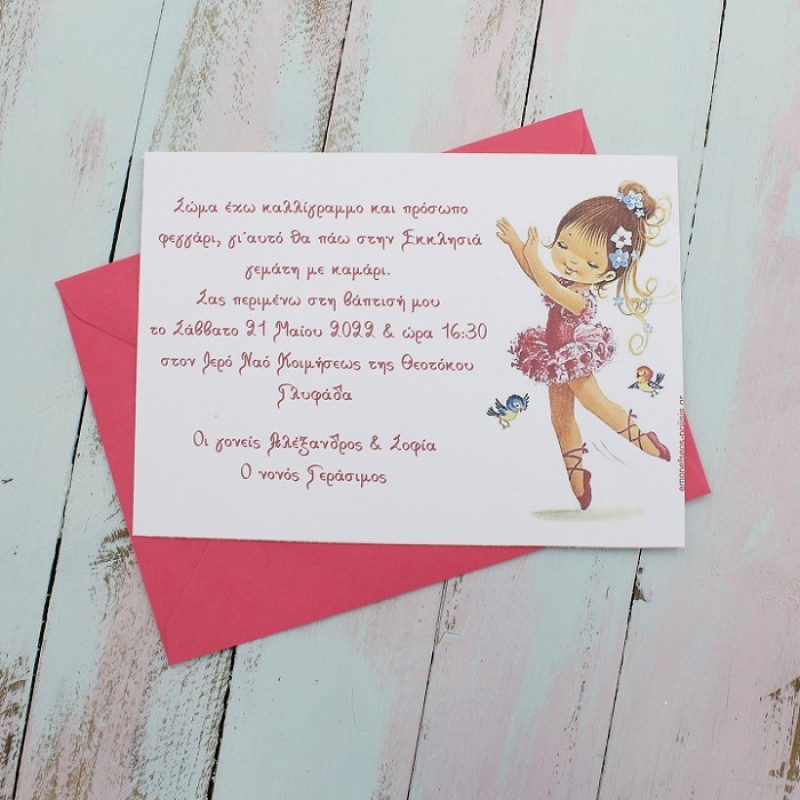 Σώμα έχω καλλίγραμμο και πρόσωπο
φεγγάρι, γι'αυτό θα πάω στην Εκκλησιά
γεμάτη με καμάρι.
Σας περιμένω στη βάπτισή μου
το Σάββατο 21 Μαίου 2022 & ώρα 16:30
στον Ιερό Ναό Κοιμήσεως της Θεοτόκου
Γλυφάδα
Οι γονείς Αλέξανδρος & Σοφία
Ο νονός Γεράσιμος